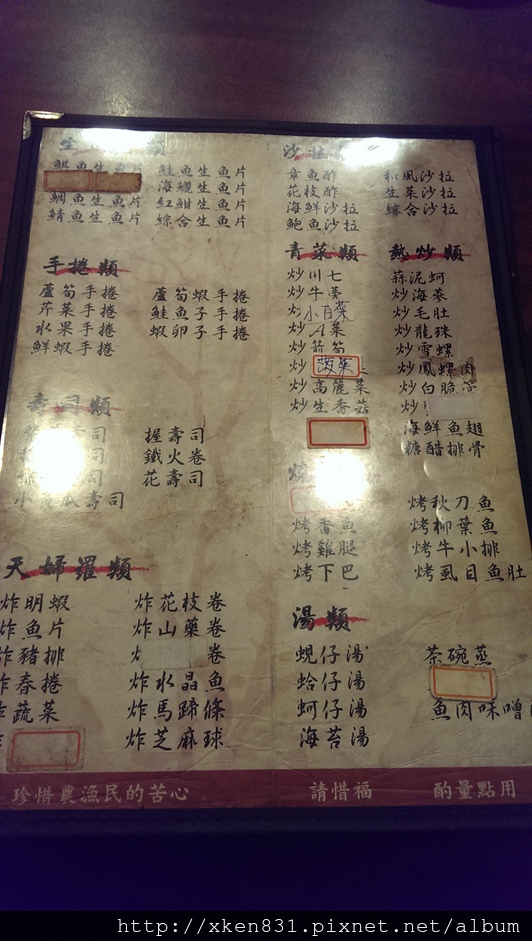 生
鮭魚生魚片
海鱺生魚片
鯛魚生魚片 紅魽生魚片
鯖魚生魚片 綜合生魚片
手捲類
蘆筍手捲 蘆筍蝦手捲
芹菜手捲 鮭魚子手捲
水果手捲 蝦卵子手捲
鮮蝦手捲
壽司類
司 握壽司
司 鐵火卷
花壽司
小瓜壽司
天婦羅類
炸明蝦 炸花枝卷
炸魚片 炸山藥卷
炸豬排 卷
炸春捲 炸水晶魚
炸蔬菜 炸馬蹄條
炸芝麻球
沙
章魚酢 和風沙拉
花枝酢 生菜沙拉
海鮮沙拉 綜合沙拉
鮑魚沙拉
青菜類
炒川七
炒牛蒡
炒小白菜
炒A菜
炒箭筍
炒
炒高麗菜
炒生香菇
熱炒類
蒜泥蚵
炒海蔘
炒毛肚
炒龍珠
炒雪螺
炒鳳螺肉
炒白
炒
海鮮魚翅
糖醋排骨
烤秋刀魚
烤香魚 烤柳葉魚
烤雞腿 烤牛小排
烤下巴 烤虱目魚肚
湯類
蜆仔湯 茶碗蒸
蛤仔湯
蚵仔湯 魚肉味噌
海苔湯
珍惜農漁民的苦心 請惜福 酌量點用
http://xken831.pixnet.net/album